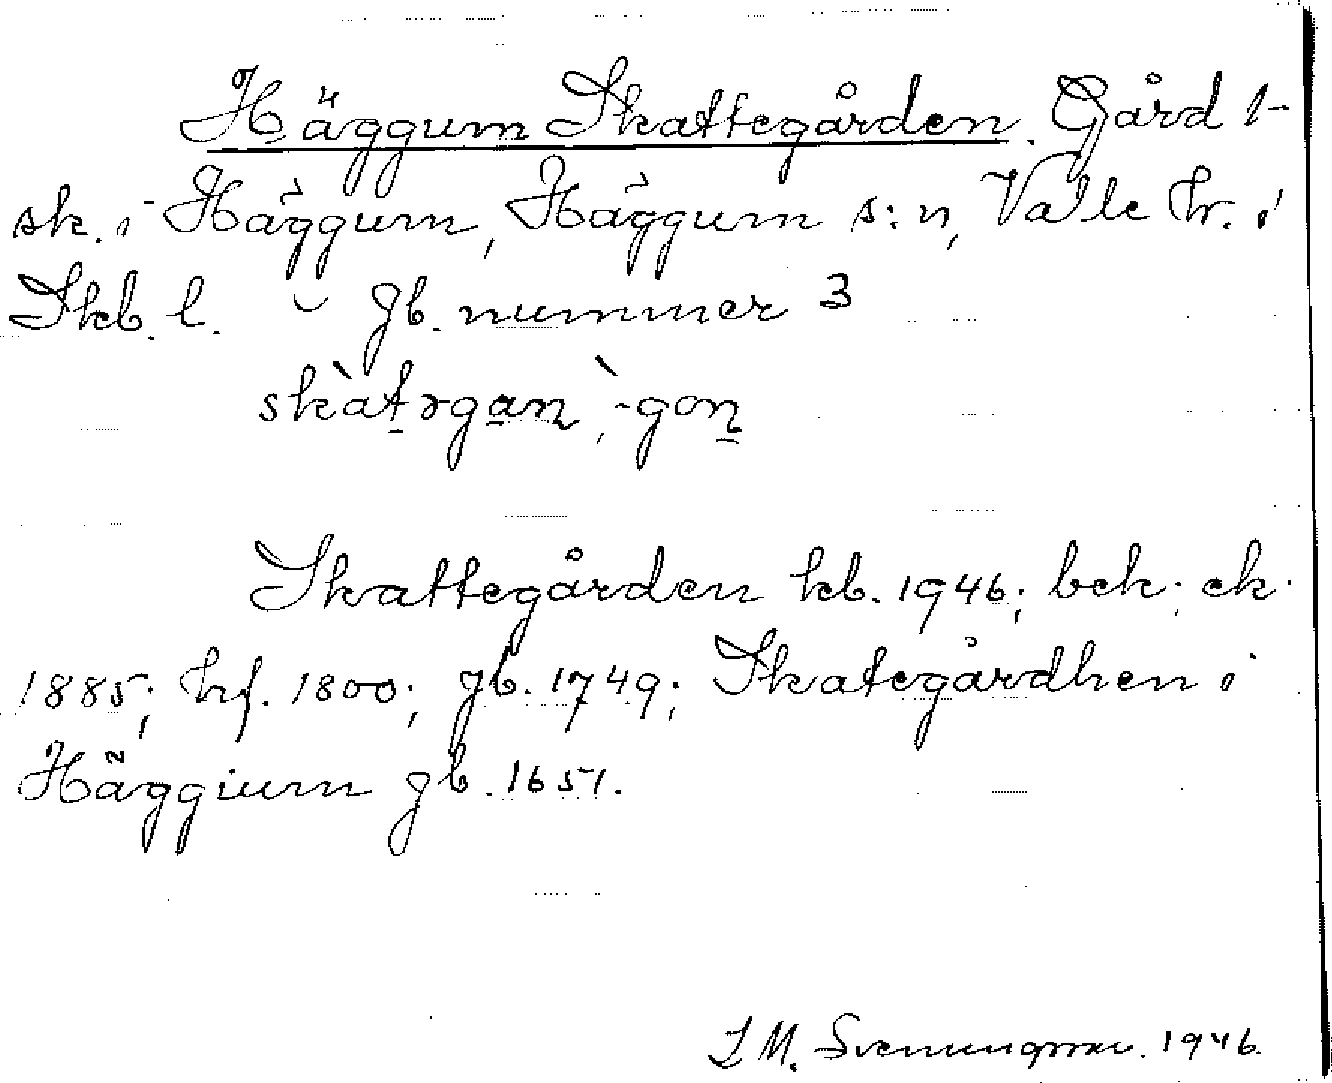 Häggum Skattegården. Gård 1
sk. i Häggum, Häggum s:n, Valle hr. i
Skb. l. gb. nummer 3
skàtəgan, -gon
Skattegården kb. 1946; bek. ek.
1885; hf. 1800; gb. 1749; Skategårdhen i
Häggium gb. 1651.
1946.